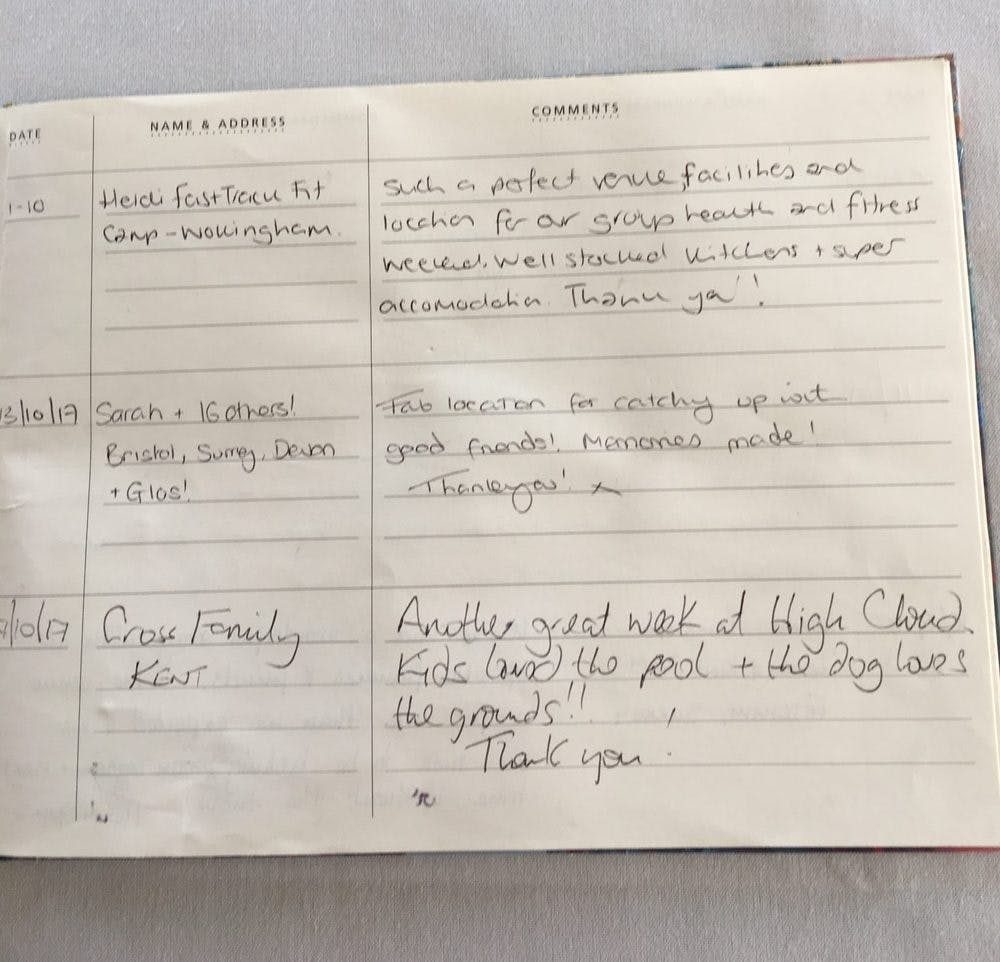 DATE
NAME & ADDRESS
COMMENTS
1-10
Heidi FastTrack Fit
Camp - Wokingham.
Such a perfect venue, facilities and
location for our group health and fitness
weekend. Well stocked kitchens + super
accomodation. Thank you!
13/10/17
Sarah + 16 others!
Bristol, Surrey, Devon
+ Glos!
Fab location for catching up with
good friends! Memories made!
Thankyou! x
/10/17
Cross Family
KENT
Another great week at High Cloud.
Kids loved the pool + the dog loves
the grounds!!
Thank you.